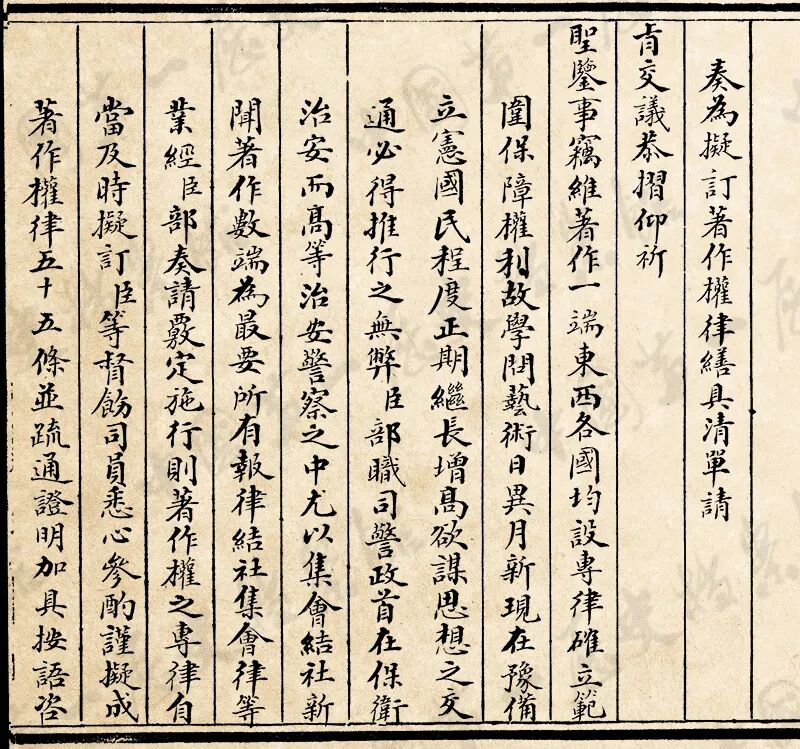 奏為擬訂著作權律繕具清單請
旨交議恭摺仰祈
聖鑒事竊維著作一端東西各國均設專律確立範
圍保障權利故學問藝術日異月新現在豫備
立憲國民程度正期繼長增高欲謀思想之交
通必得推行之無弊臣部職司警政首在保衛
治安而高等治安警察之中尤以集會結社新
聞著作數端為最要所有報律結社集會律等
業經臣部奏請覈定施行則著作權之專律自
當及時擬訂臣等督飭司員悉心參酌謹擬成
著作權律五十五條並疏通證明加具按語咨